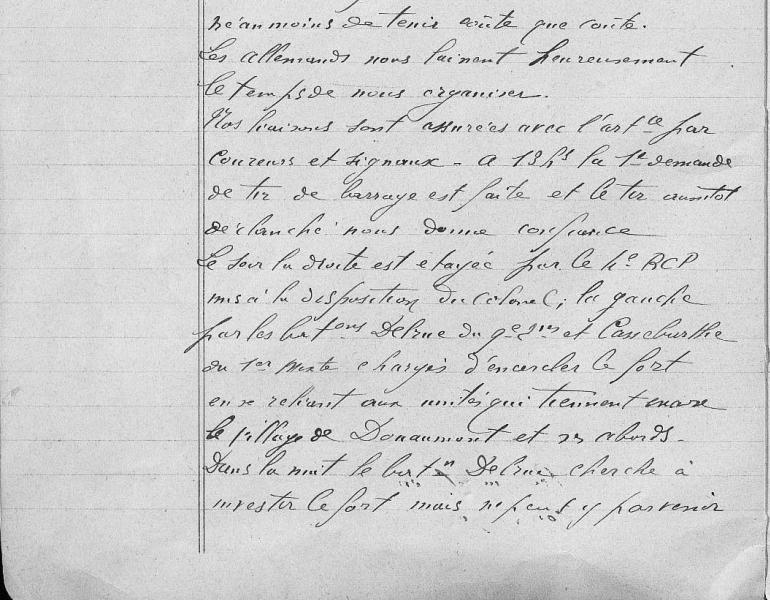 néanmoins de tenir coûte que coûte.
Les allemands nous laissent heureusement
le temps de nous organiser.
Nos liaisons sont assurées avec l'artie par
coureurs et signaux - A 13hs la 1e demande
de tir de barrage est faite et le tir aussitot
déclanché nous donne confiance
Le soir la droite est etayée par le 4e BCP
mis à la disposition du Colonel; la gauche
par les batons Delrue du et Casseburthe
du 1er Mixte chargés d'encercler le fort
en se reliant aux unités qui tiennent encore
le village de Douaumont et ses abords.
Dans la nuit le baton Delrue cherche à
investir le fort mais ne peut y parvenir